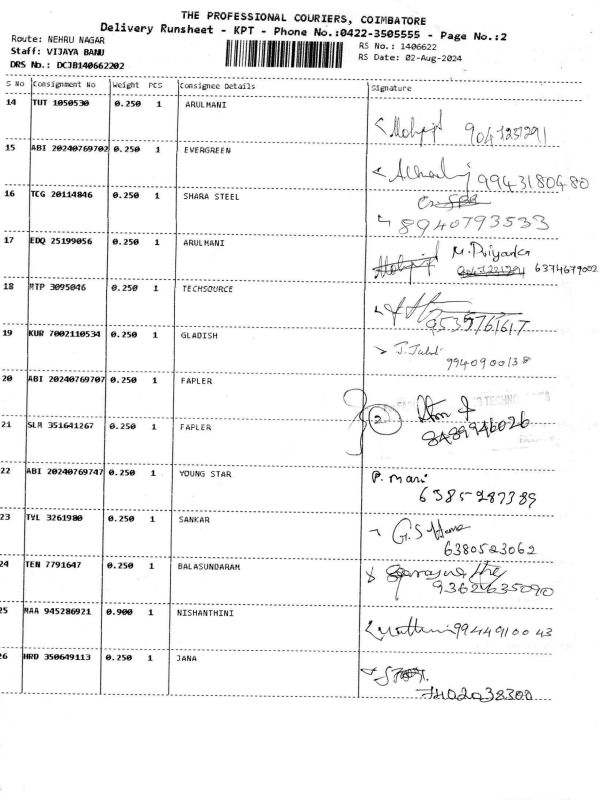 THE PROFESSIONAL COURIERS, COIMBATORE
Delivery Runsheet - KPT - Phone No.:0422-3505555 - Page No.:2
Route: NEHRU NAGAR
RS No.: 1406622
Staff: VIJAYA BANU
RS Date: 02-Aug-2024
DRS No.: DCJB140662202
S No Consignment No Weight PCS Consignee Details Signature
14 TUT 1050530 0.250 1 ARULMANI
15 ABI 20240769702 0.250 1 EVERGREEN
9943180480
16 TCG 20114846 0.250 1 SHARA STEEL
8940793533
17 EDQ 25199056 0.250 1 ARULMANI M. Priyanka
6374679002
18 MTP 3095046 0.250 1 TECHSOURCE
19 KUR 7002110534 0.250 1 GLADISH
9940900138
20 ABI 20240769707 0.250 1 FAPLER
2
21 SLM 351641267 0.250 1 FAPLER
8489946026
22 ABI 20240769747 0.250 1 YOUNG STAR P. mari
6385287389
23 TVL 3261980 0.250 1 SANKAR
6380523062
24 TEN 7791647 0.250 1 BALASUNDARAM
25 MAA 945286921 0.900 1 NISHANTHINI
9944910043
26 HRD 350649113 0.250 1 JANA
7402038300